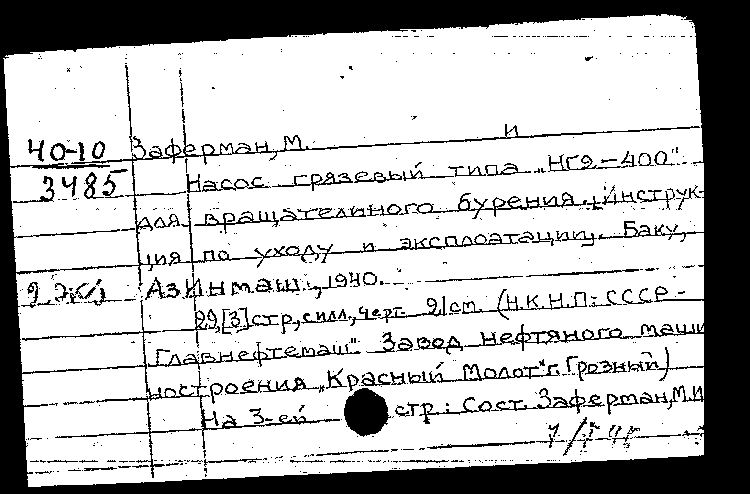 40-10 Заферман, М. И
3485 Насос грязевый типа „НГ9-400"
для вращателиного бурения. Инструк-
ция по уходу и эксплоатации. Баку,
2 экз Азинмаш, 1940.
29,[3]стр, с илл, черт. 21 ст. (Н.К.Н.П: СССР -
„Главнефтемаш". Завод нефтяного маши
ностроения „Красный Молот" г. Грозный)
На 3-ей стр: Сост. Заферман, М.И